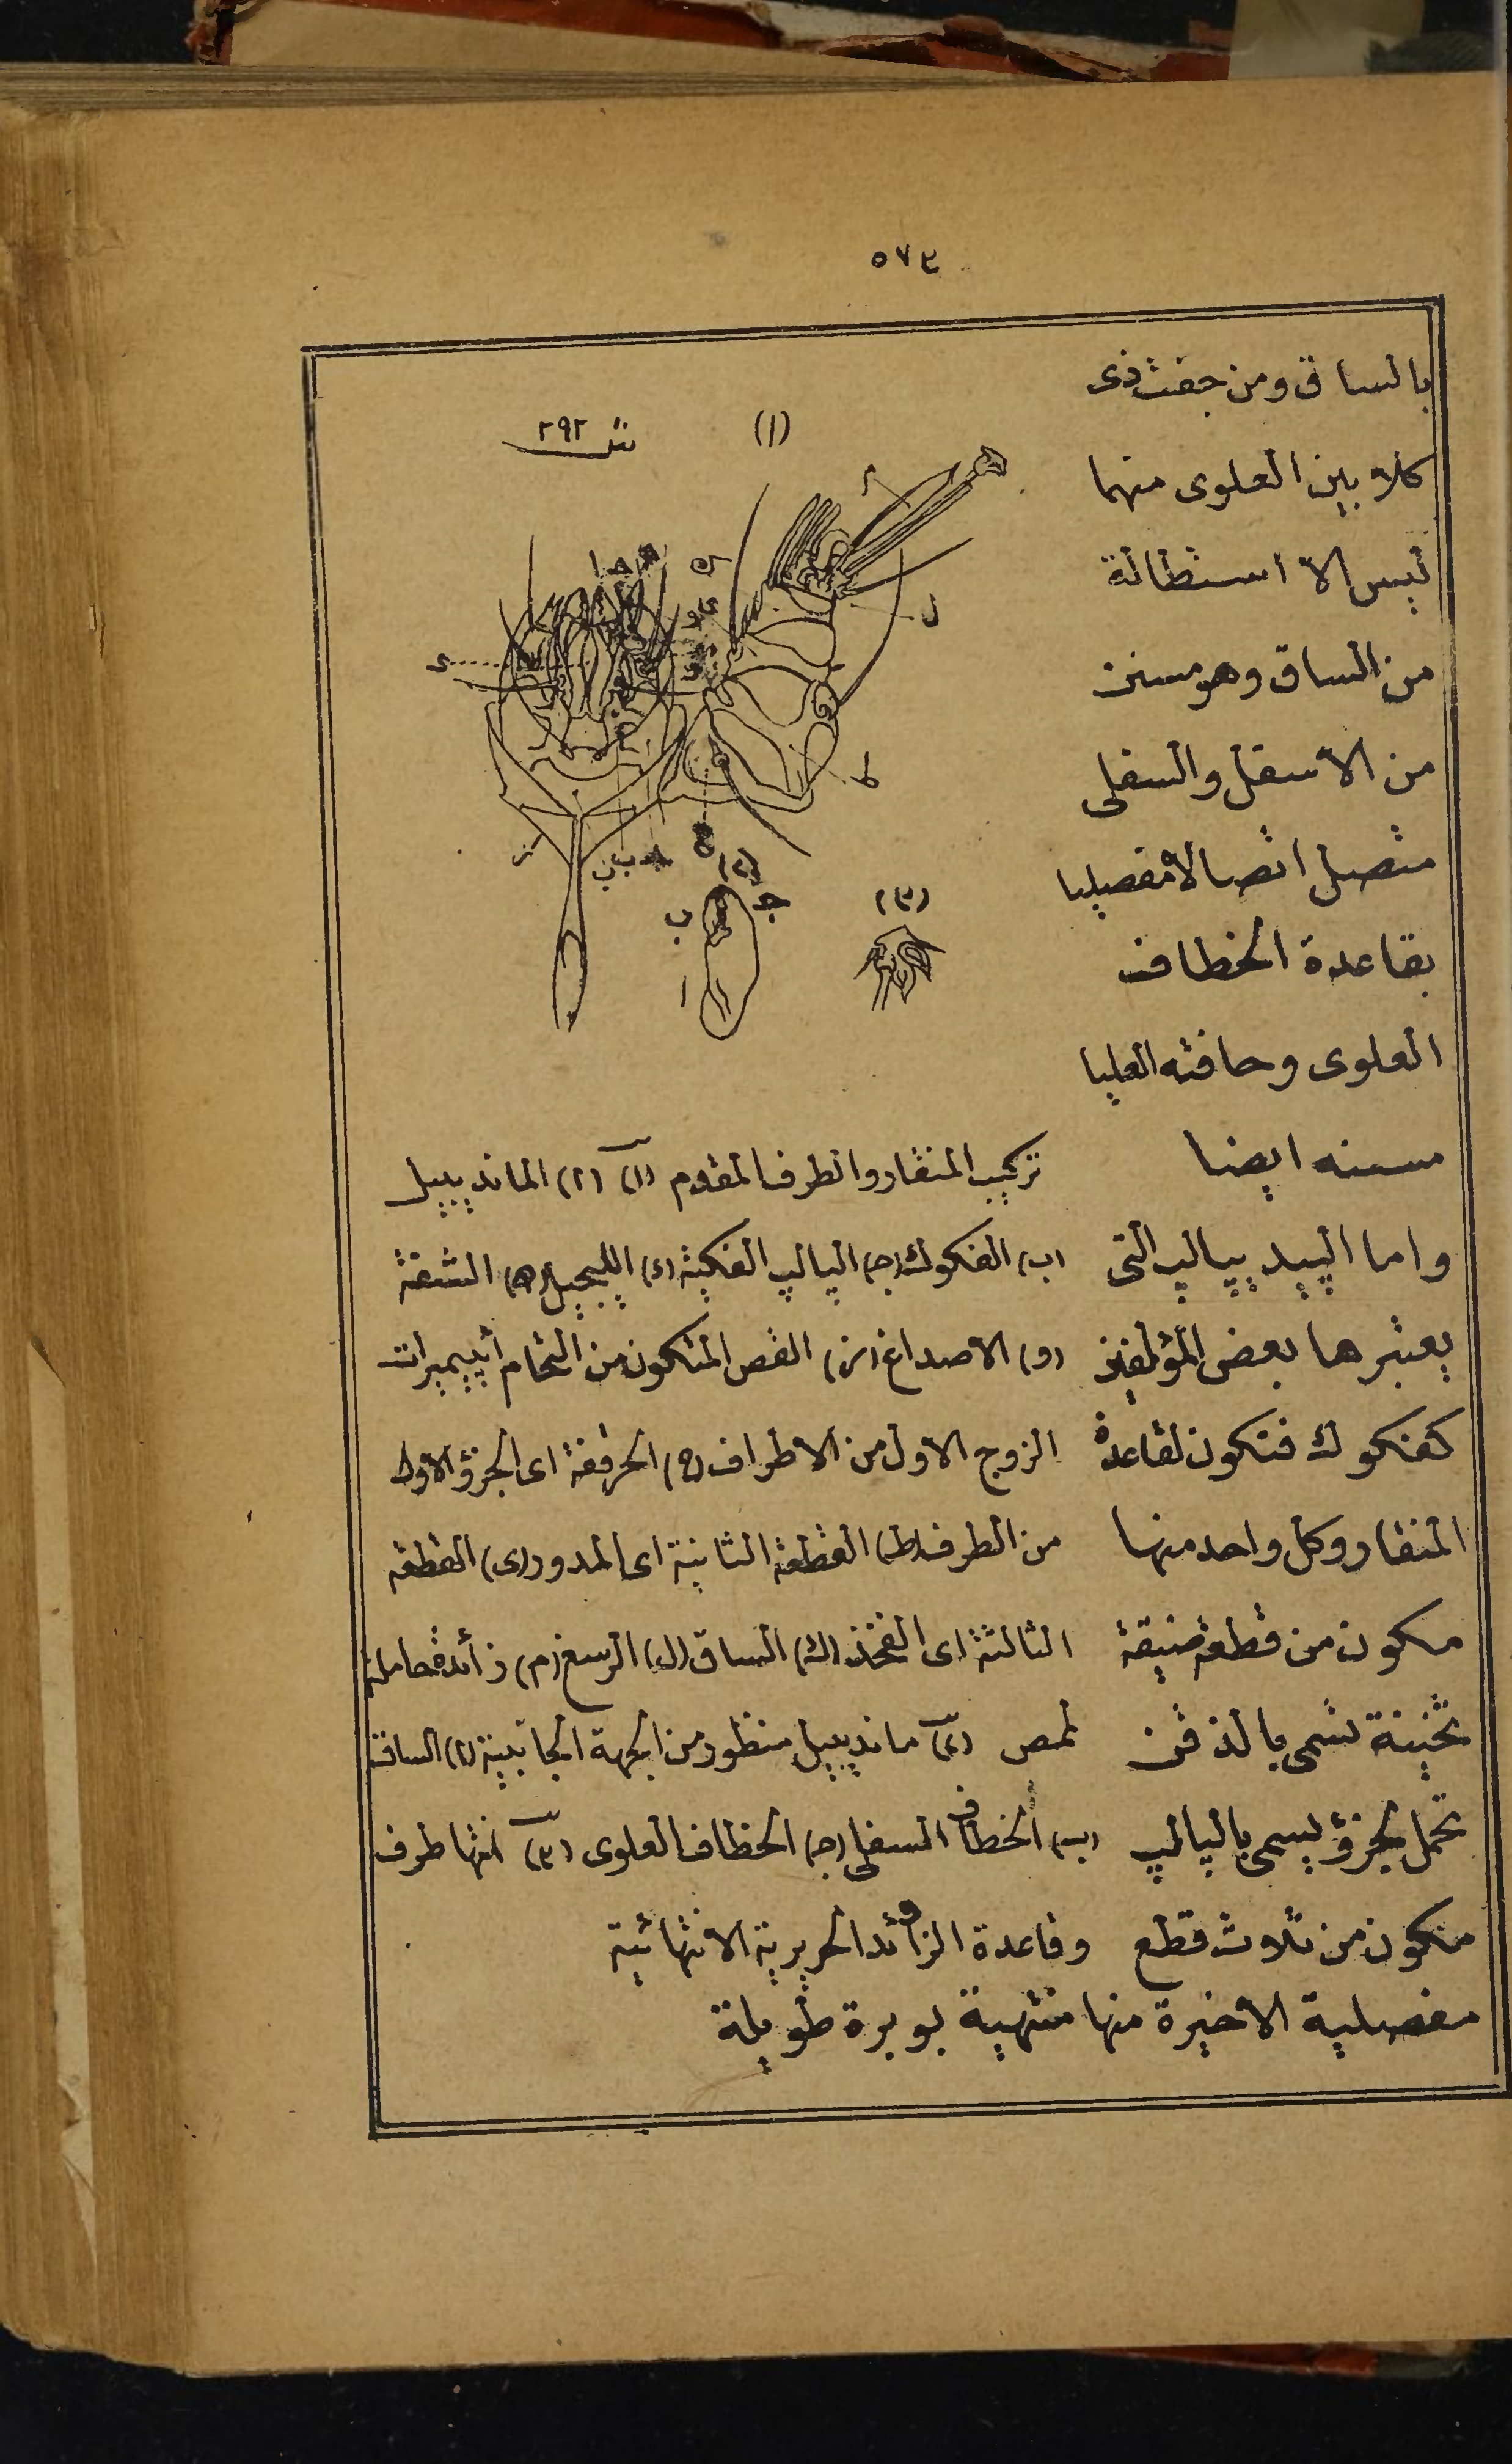 ٥٧٣
بالساق ومن جفت ذى
كلابين العلوى منهما
ليس الا استطالة
من الساق وهو مسنن
من الاسفل والسفلى
متصل اتصالا مفصليا
بقاعدة الخطاف
العلوى وحافته العليا
مسننه ايضا
واما الپيد پيالپ التى
يعتبرها بعض المؤلفين
كفكوك فتكون لقاعدة
المنقار وكل واحد منها
مكون من قطعة ضيقة
ثخينة تسمى بالذقن
تحمل لجزؤ يسمى بالپالپ
متكون من ثلاث قطع
مفصلية الاخيرة منها منتهية بوبرة طويلة
شكل ٢٩٢
(١)
م
ل
ط
ح
ز
(٢)
ب
ج
ا
(٣)
تركيب المنقار والطرف المقدم (١) (ا) المانديبيل
(ب) الفكوك (ج) الپالپ الفكية (د) الليجيل (ه) الشفة
(و) الاصداغ (ز) القص المتكون من التحام أپيميرات
الزوج الاول من الاطراف (ح) الحرقفة اى الجزؤ الاول
من الطرف (ط) القطعة الثانية اى المدور (ى) القطعة
الثالثة اى الفخذ (ك) الساق (ل) الرسغ (م) زائدة حاملة
لمص (٢) مانديبيل منظور من الجهة الجانبية (ا) الساق
(ب) الخطاف السفلى (ج) الخطاف العلوى (٣) انتها طرف
وقاعدة الزوائد الحريرية الانتهائية